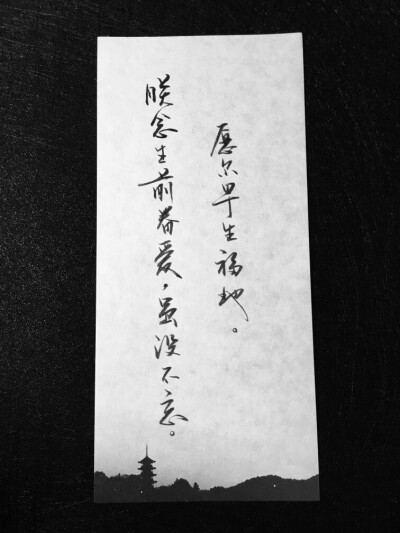 愿尔早生福地。
朕念生前眷爱，虽没不忘。